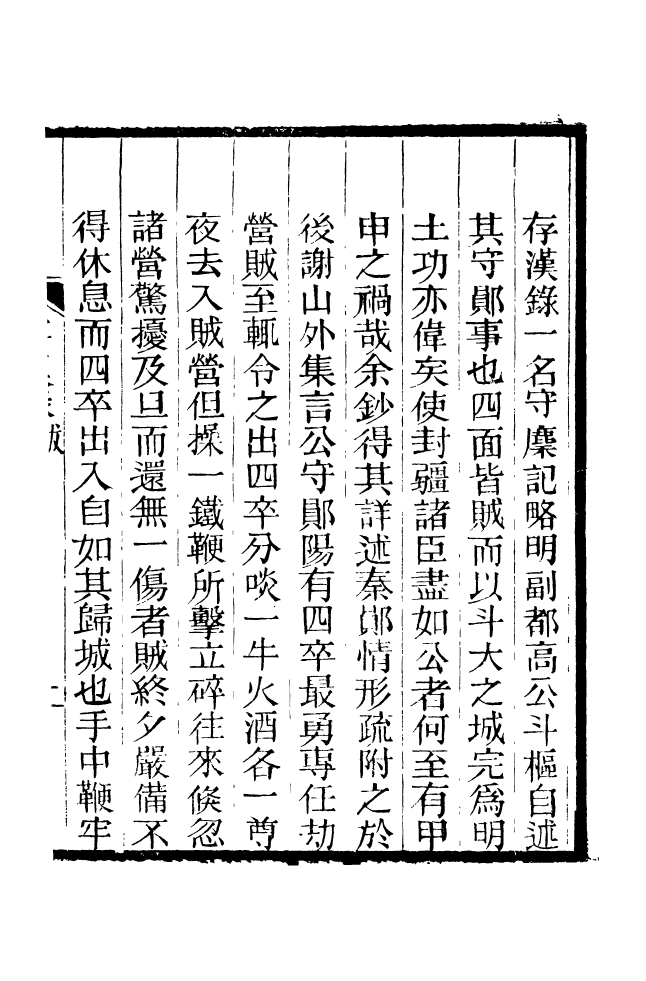 存漢錄一名守麇記略明副都高公斗樞自述
其守鄖事也四面皆賊而以斗大之城完爲明
土功亦偉矣使封疆諸臣盡如公者何至有甲
申之禍哉余鈔得其詳述秦鄖情形疏附之於
後謝山外集言公守鄖陽有四卒最勇專任劫
營賊至輒令之出四卒分啖一牛火酒各一尊
夜去入賊營但操一鐵鞭所擊立碎往來倏忽
諸營驚擾及旦而還無一傷者賊終夕嚴備不
得休息而四卒出入自如其歸城也手中鞭牢